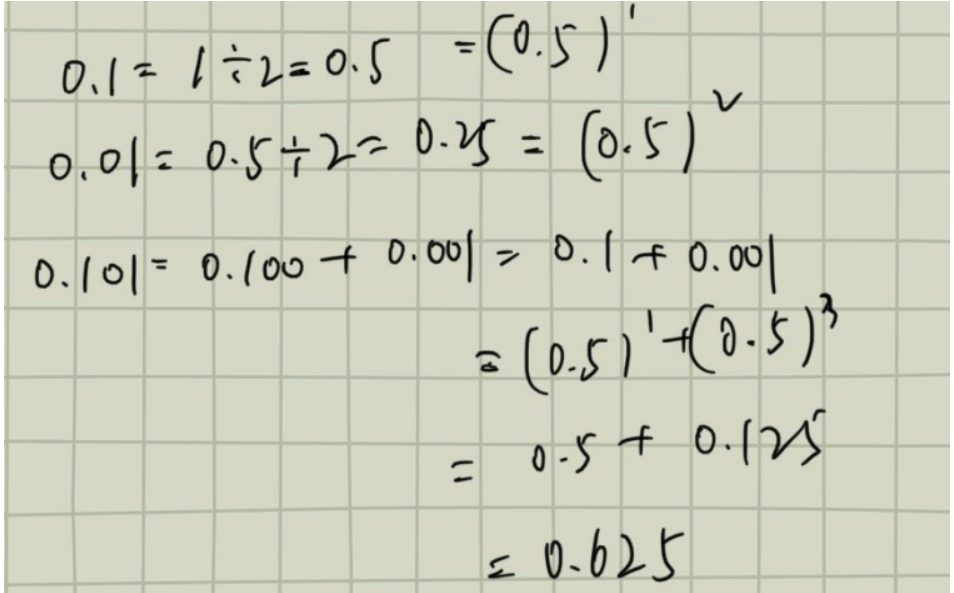 0.1 = 1 ÷ 2 = 0.5 = (0.5)¹
0.01 = 0.5 ÷ 2 = 0.25 = (0.5)²
0.101 = 0.100 + 0.001 = 0.1 + 0.001
= (0.5)¹ + (0.5)³
= 0.5 + 0.125
= 0.625